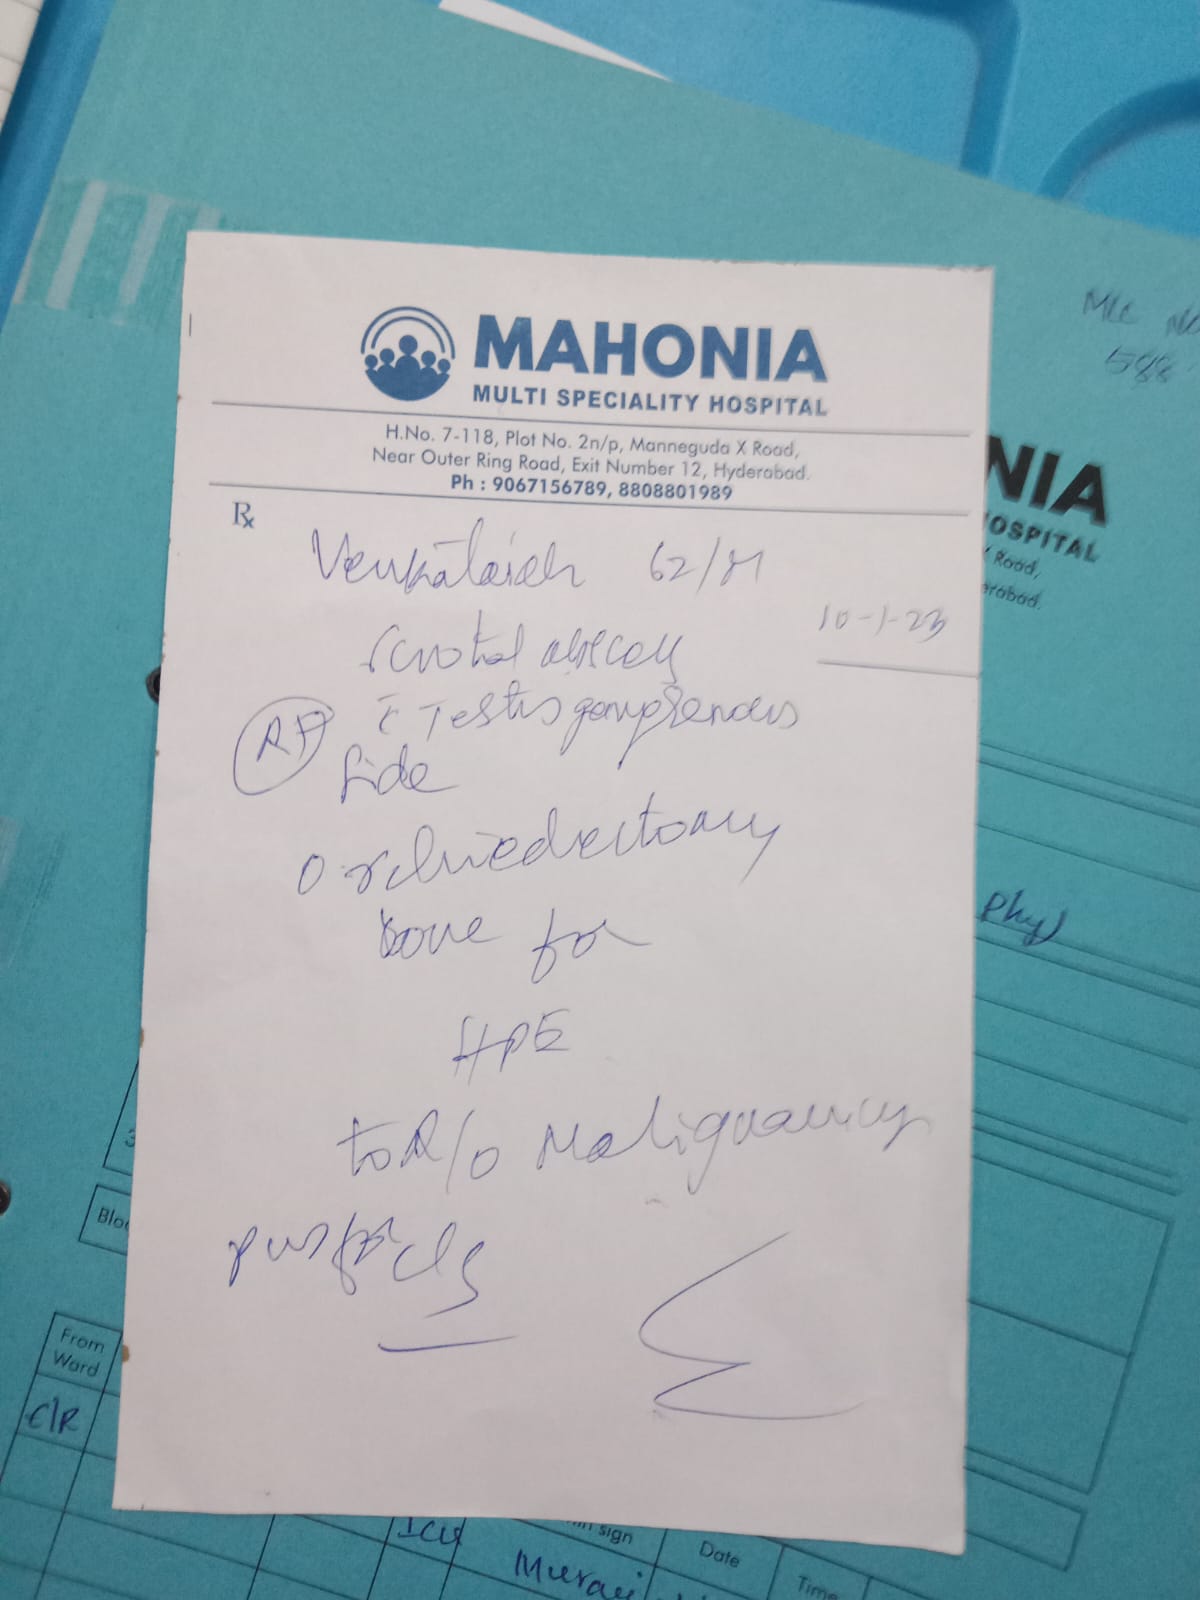 MAHONIA
MULTI SPECIALITY HOSPITAL
H.No. 7-118, Plot No. 2n/p, Manneguda X Road,
Near Outer Ring Road, Exit Number 12, Hyderabad.
Ph : 9067156789, 8808801989
Rx
Venkataiah 62/M
10-1-23
scrotal abscess
c̄ Testis gangrenous
Side
Orchiedectomy
done for
HPE
to R/o Malignancy
pus for c/s
MLC No
588
NIA
HOSPITAL
X Road,
erabad.
Phy
3
Bloo
From
Ward
C/R
ICU
sign
Murali
Date
Time